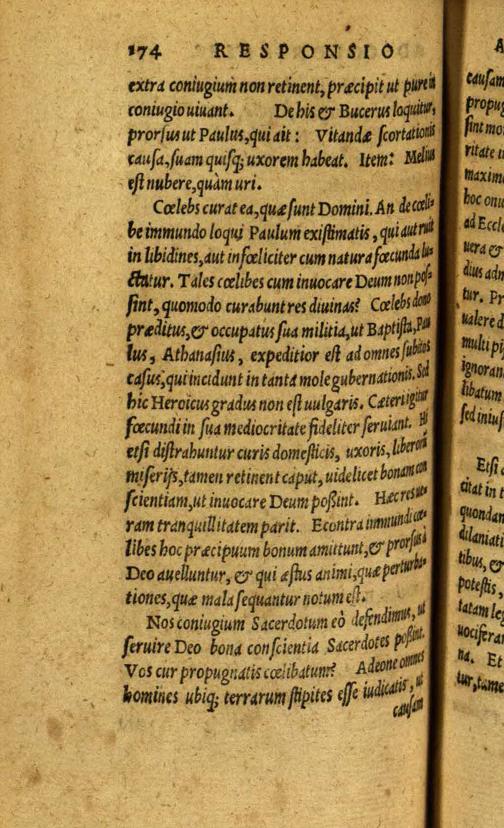 174 RESPONSIO
extra coniugium non retinent, præcipit ut pure in
coniugio uiuant. De his & Bucerus loquitur,
prorsus ut Paulus, qui ait: Vitandæ scortationis
causa, suam quisq; uxorem habeat. Item: Melius
est nubere, quàm uri.
Cœlebs curat ea, quæ sunt Domini. An de cœli-
be immundo loqui Paulum existimatis, qui aut ruit
in libidines, aut infœliciter cum natura fœcunda lu-
ctatur. Tales cœlibes cum inuocare Deum non pos-
sint, quomodo curabunt res diuinas? Cœlebs dono
præditus, & occupatus sua militia, ut Baptista, Pau
lus, Athanasius, expeditior est ad omnes subitos
casus, qui incidunt in tanta mole gubernationis. Sed
hic Heroicus gradus non est uulgaris. Cæteri igitur
fœcundi in sua mediocritate fideliter seruiant. Hi
etsi distrahuntur curis domesticis, uxoris, liberorũ
miserijs, tamen retinent caput, uidelicet bonam con
scientiam, ut inuocare Deum poßint. Hæc res ue-
ram tranquillitatem parit. Econtra immundi cœ-
libes hoc præcipuum bonum amittunt, & prorsus à
Deo auelluntur, & qui æstus animi, quæ perturba-
tiones, quæ mala sequantur notum est.
Nos coniugium Sacerdotum eò defendimus, ut
seruire Deo bona conscientia Sacerdotes poßint.
Vos cur propugnatis cœlibatum? Adeone omnes
homines ubiq; terrarum stipites esse iudicatis, ut
causam
causam
propug
sint mo
ritate
maxim
hoc onu
ad Eccle
uera &
dius adm
tur. Pr
ualere d
multi pi
ignoran
libatum
sed inius
Etsi
citat in t
quondam
dilaniati
tibus, &
potestis,
tatam leg
uociferan
na. Et
tur, tame